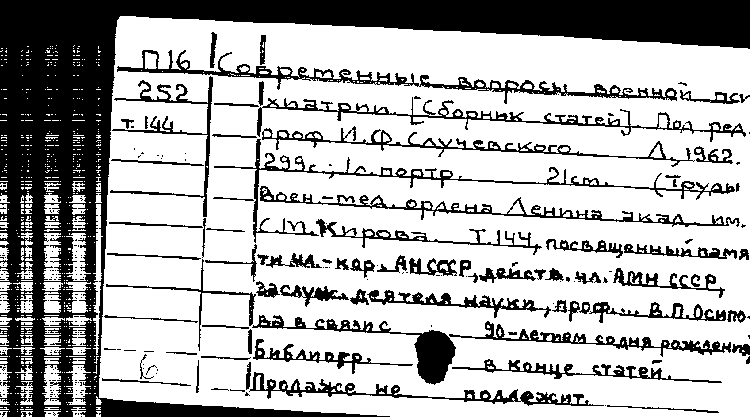 П16 Современные вопросы военной пси
252 хиатрии. [Сборник статей]. Под ред.
т. 144. проф И.Ф. Случевского. Л., 1962.
299с.; 1л. портр. 21см. (Труды
Воен.-мед. ордена Ленина акад. им.
С.М.Кирова. Т.144, посвященный памя
ти чл.-кор. АН СССР, действ. чл. АМН СССР,
заслуж. деятеля науки, проф... В.П.Осипо-
ва в связи с 90-летием со дня рождения
Библиогр. в конце статей.
б Продаже не подлежит.